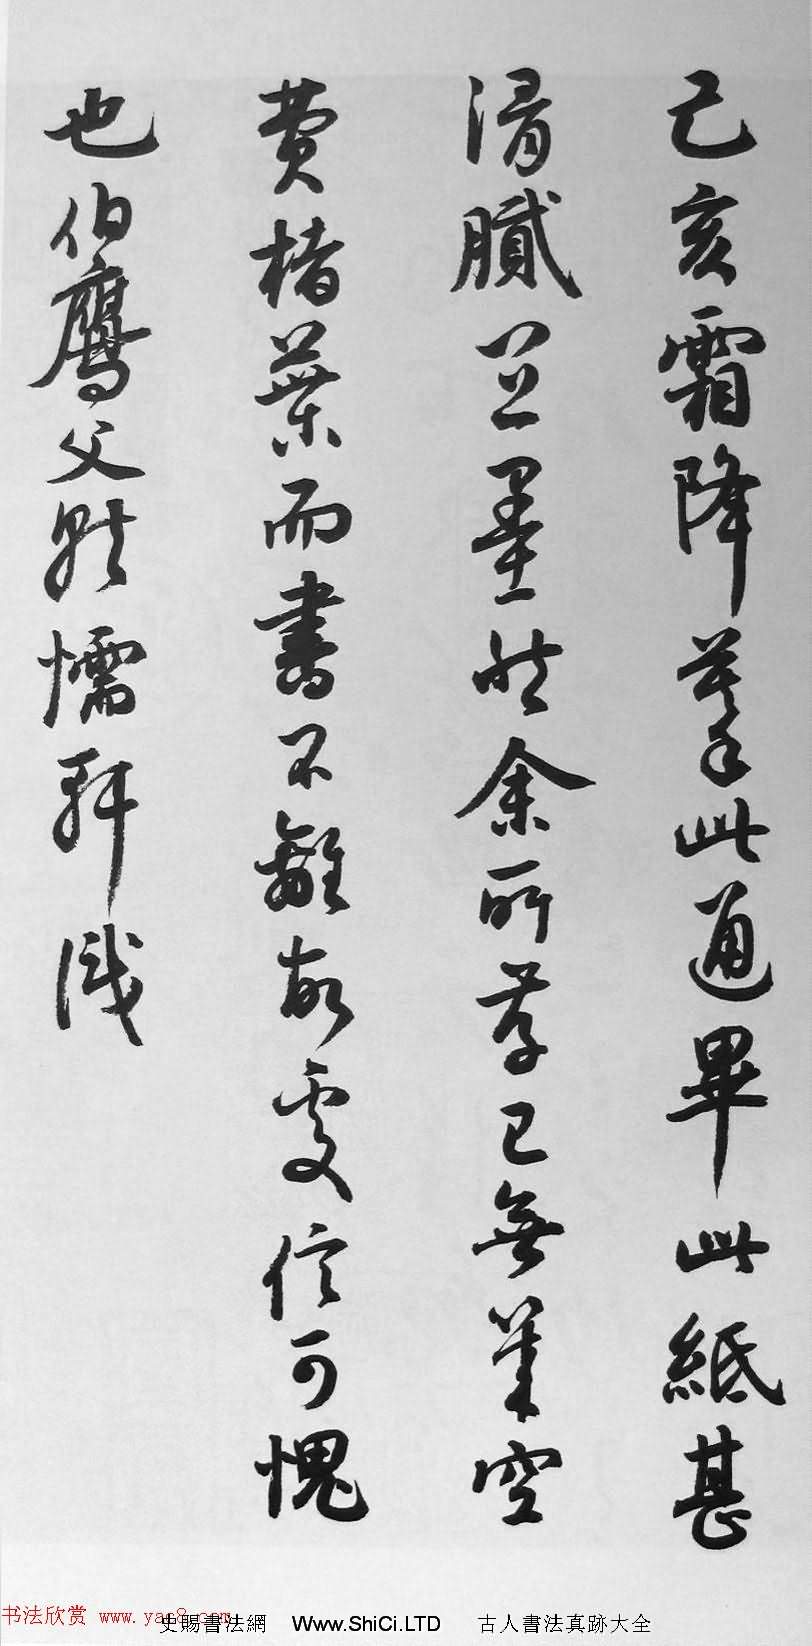 己亥霜降摹此通畢此紙甚
滑膩宜墨然余所存已無幾空
費楮葉而書不離故處信可愧
也伯鷹父懦拜識
书法欣赏 www.yac8.com
史賜書法網 Www.ShiCi.LTD 古人書法真跡大全